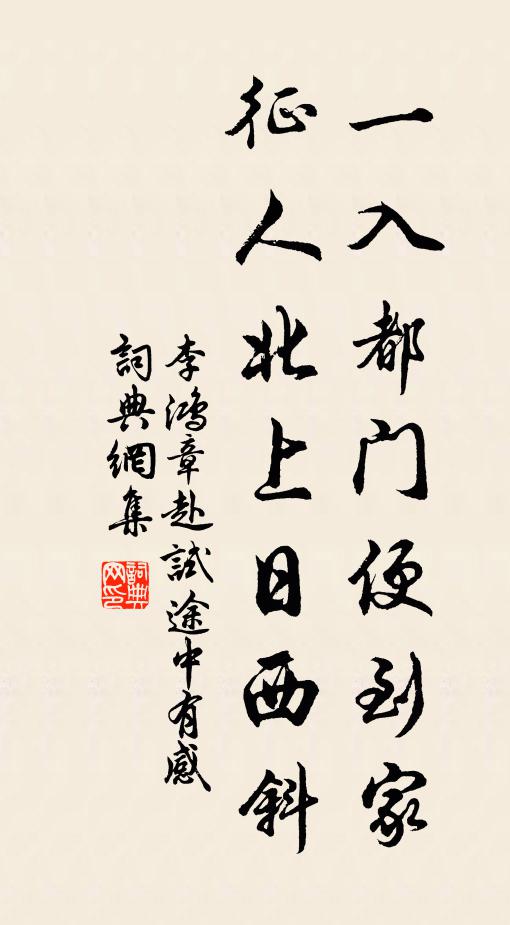 一入都门便到家
征人北上日西斜
李鴻章赴試途中有感
詞典網集
詞典网印